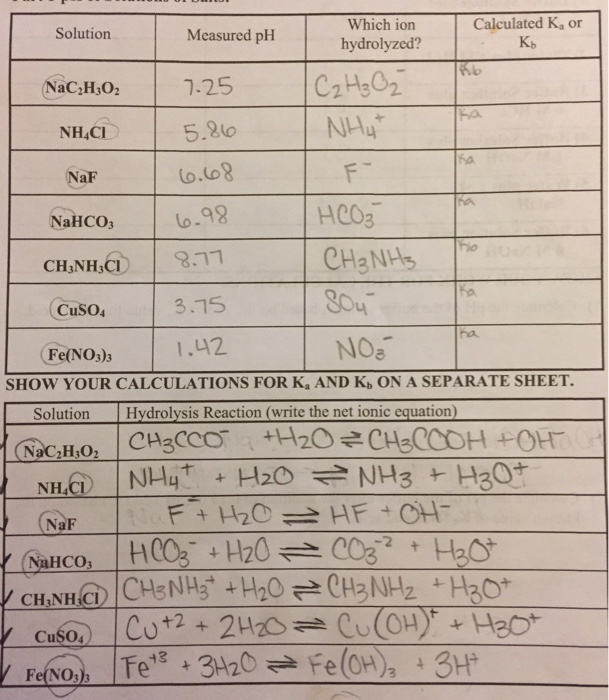 Solution Measured pH Which ion hydrolyzed? Calculated Kₐ or K_b
NaC₂H₃O₂ 7.25 C₂H₃O₂⁻ Kb
NH₄Cl 5.86 NH₄⁺ Ka
NaF 6.68 F⁻ Ka
NaHCO₃ 6.98 HCO₃⁻ Ka
CH₃NH₃Cl 8.77 CH₃NH₃ Kb
CuSO₄ 3.75 SO₄⁻ Ka
Fe(NO₃)₃ 1.42 NO₃⁻ Ka
SHOW YOUR CALCULATIONS FOR Kₐ AND K_b ON A SEPARATE SHEET.
Solution Hydrolysis Reaction (write the net ionic equation)
NaC₂H₃O₂ CH₃CCO⁻ + H₂O ⇌ CH₃COOH + OH⁻
NH₄Cl NH₄⁺ + H₂O ⇌ NH₃ + H₃O⁺
NaF F⁻ + H₂O ⇌ HF + OH⁻
NaHCO₃ HCO₃⁻ + H₂O ⇌ CO₃⁻² + H₃O⁺
CH₃NH₃Cl CH₃NH₃⁺ + H₂O ⇌ CH₃NH₂ + H₃O⁺
CuSO₄ Cu⁺² + 2H₂O ⇌ Cu(OH)⁺ + H₃O⁺
Fe(NO₃)₃ Fe⁺³ + 3H₂O ⇌ Fe(OH)₃ + 3H⁺